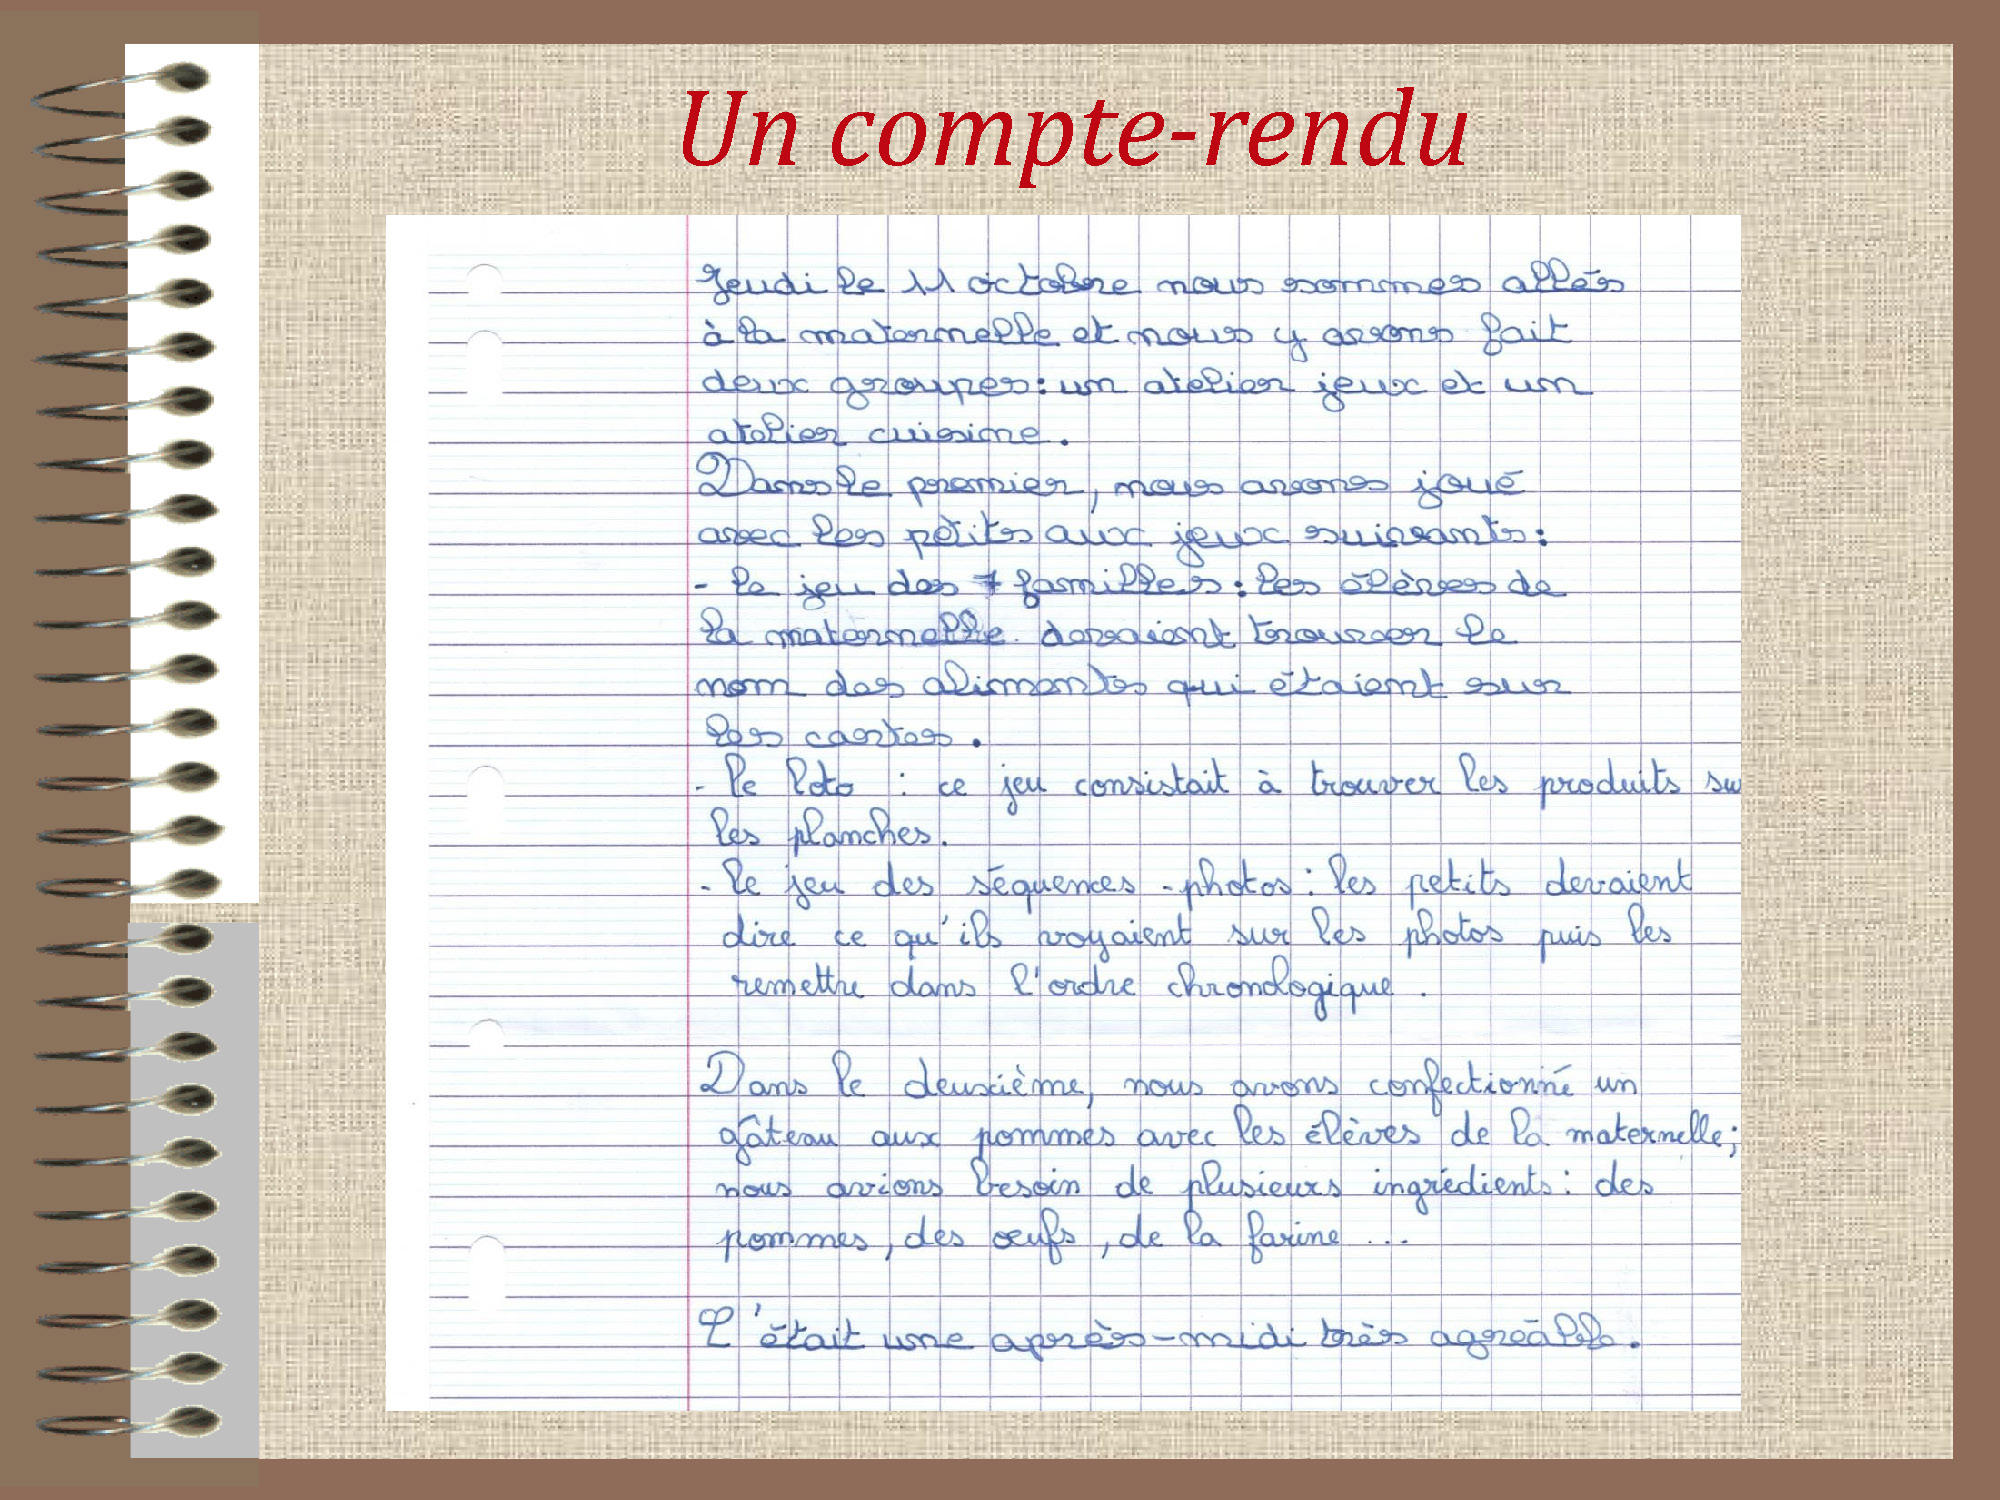 Un compte-rendu
Jeudi le 11 octobre nous sommes allés
à la maternelle et nous y avons fait
deux groupes : un atelier jeux et un
atelier cuisine.
Dans le premier, nous avons joué
avec les petits aux jeux suivants :
- le jeu des 7 familles : les élèves de
la maternelle devaient trouver le
nom des aliments qui étaient sur
les cartes.
- le loto : ce jeu consistait à trouver les produits su
les planches.
- le jeu des séquences-photos : les petits devaient
dire ce qu'ils voyaient sur les photos puis les
remettre dans l'ordre chronologique.
Dans le deuxième, nous avons confectionné un
gâteau aux pommes avec les élèves de la maternelle;
nous avions besoin de plusieurs ingrédients : des
pommes, des œufs, de la farine ...
C'était une après-midi très agréable.